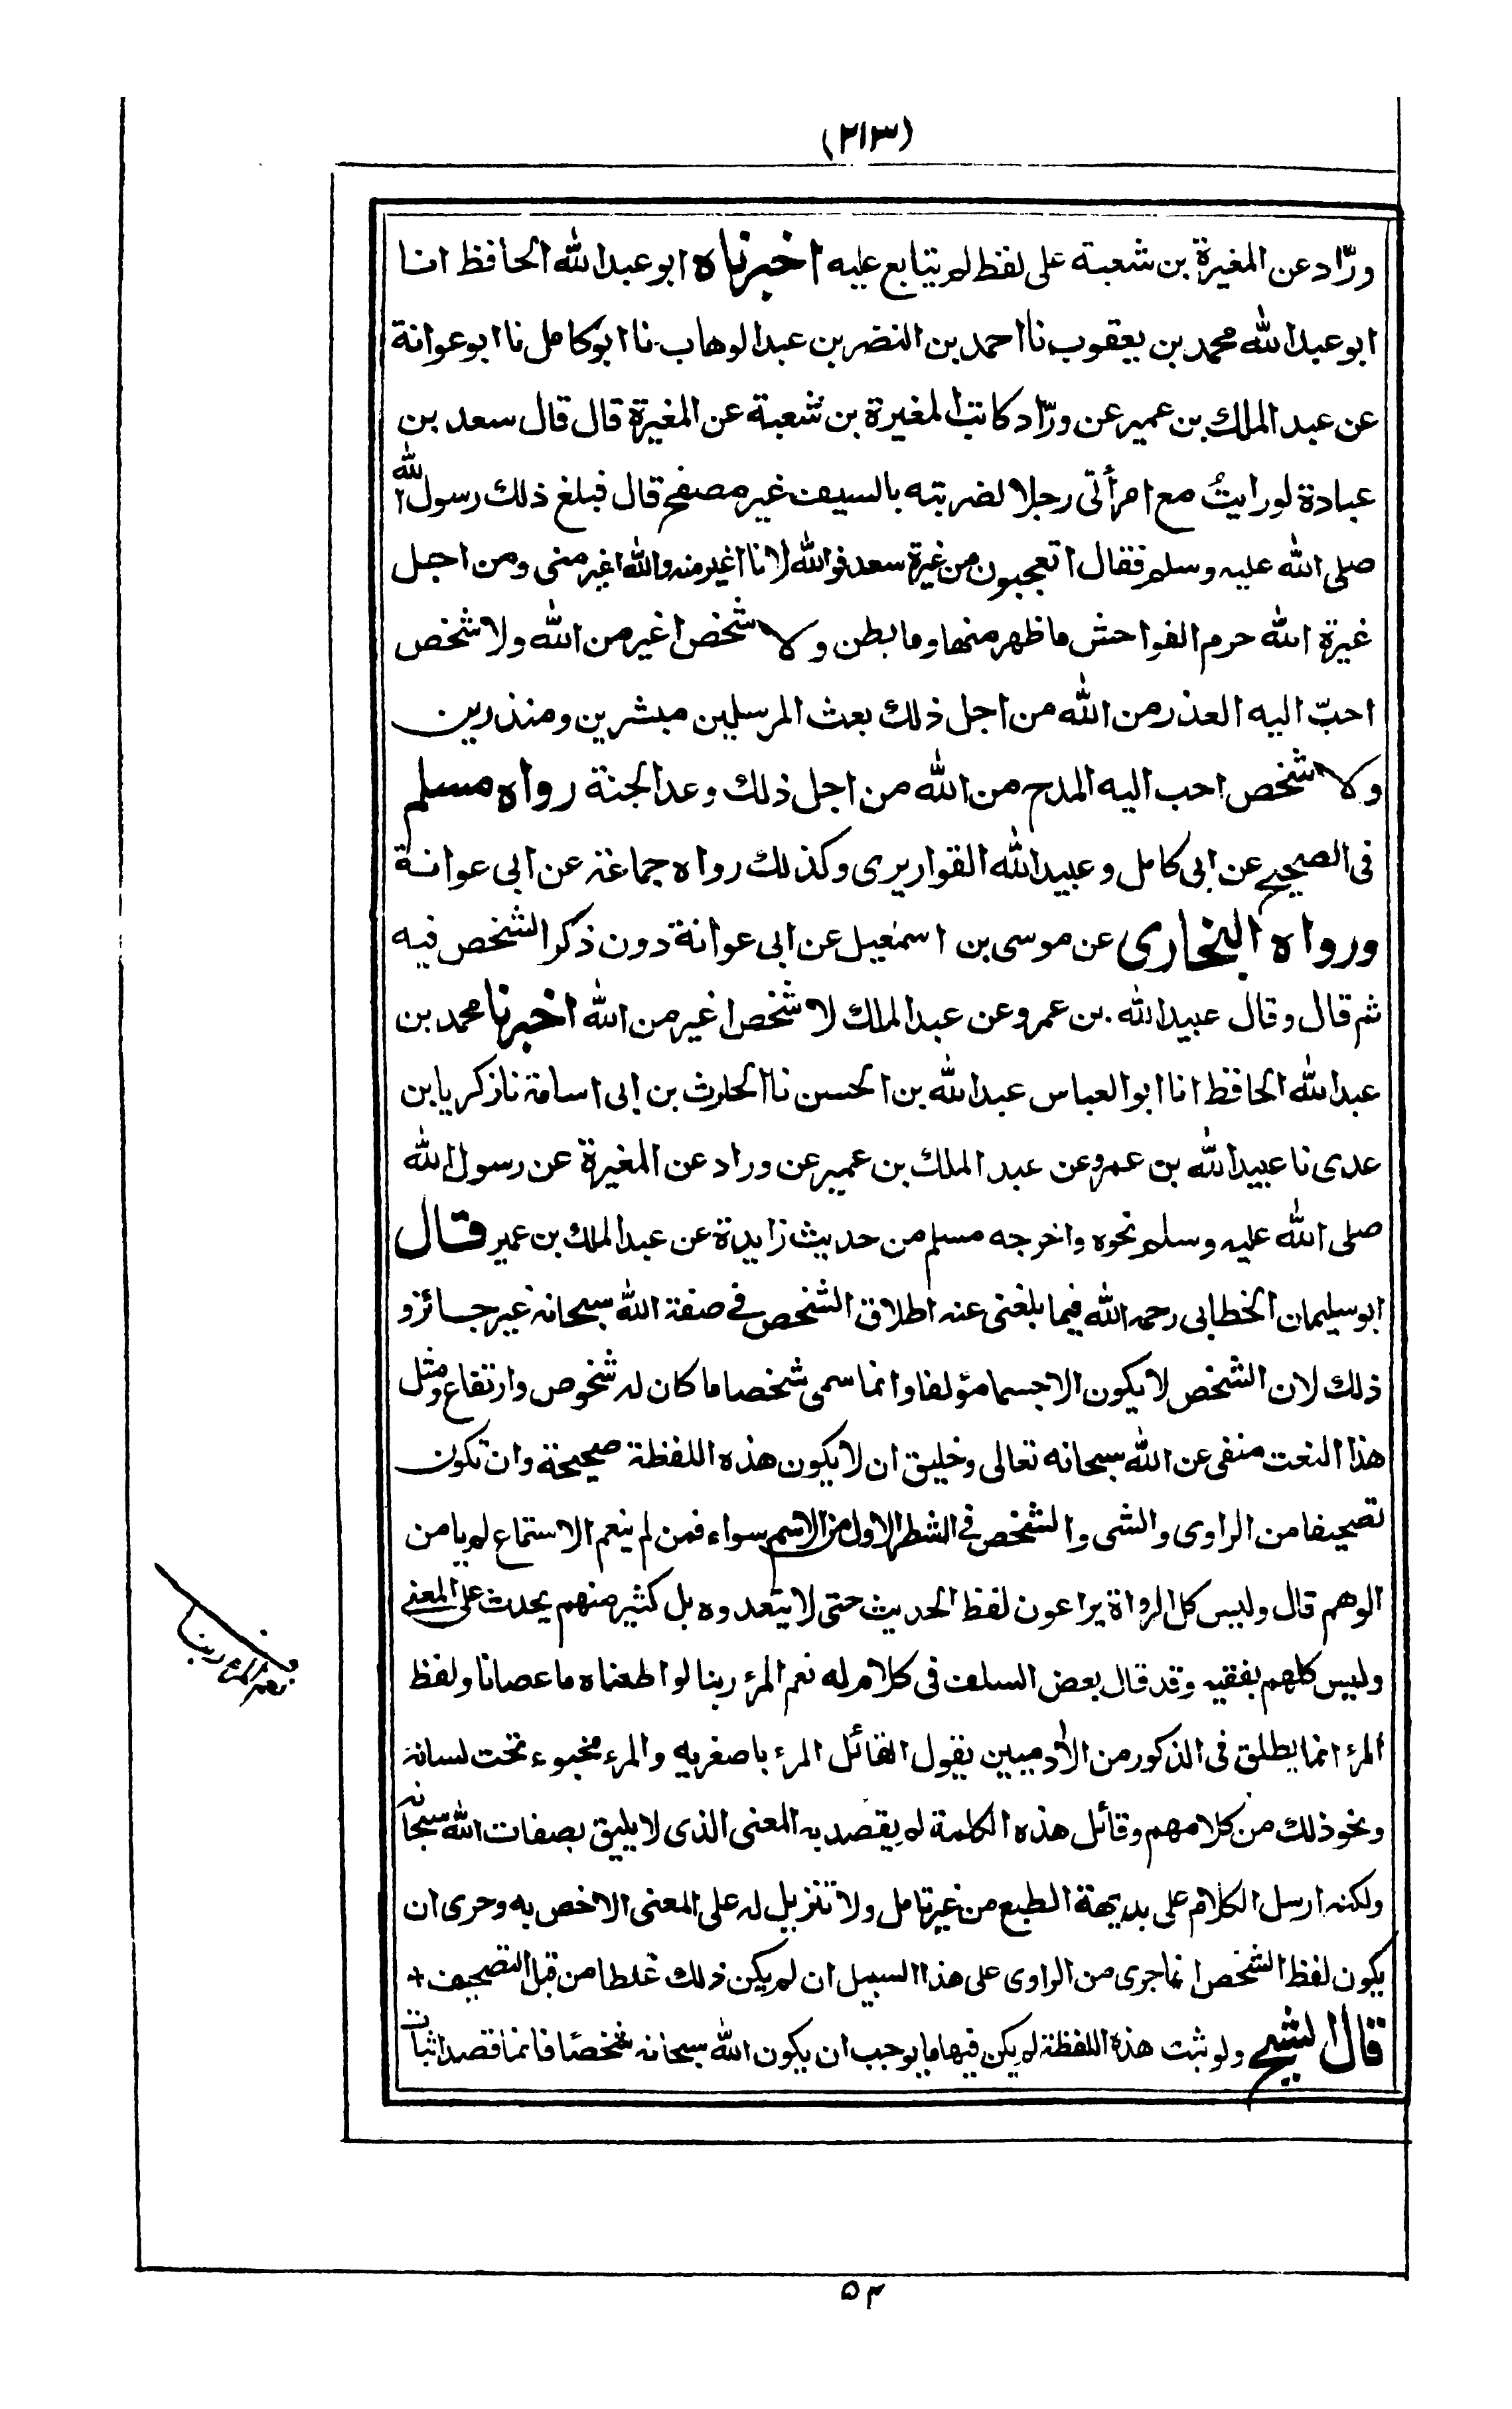 (٢١٣)
ورّاد عن المغيرة بن شعبة على لفظ لم يتابع عليه اخبرناه ابو عبدالله الحافظ انا
ابو عبدالله محمد بن يعقوب نا احمد بن النضر بن عبدالوهاب نا ابو كامل نا ابو عوانة
عن عبد الملك بن عمير عن ورّاد كاتب المغيرة بن شعبة عن المغيرة قال قال سعد بن
عبادة لو رايتُ مع امرأتى رجلا لضربته بالسيف غير مصفح قال فبلغ ذلك رسول الله
صلى الله عليه وسلم فقال اتعجبون من غيرة سعد فوالله لانا اغير منه والله اغير منى ومن اجل
غيرة الله حرم الفواحش ما ظهر منها وما بطن ولا شخص اغير من الله ولا شخص
احبّ اليه العذر من الله من اجل ذلك بعث المرسلين مبشرين ومنذرين
ولا شخص احب اليه المدح من الله من اجل ذلك وعد الجنة رواه مسلم
فى الصحيح عن ابى كامل وعبيدالله القواريرى وكذلك رواه جماعة عن ابى عوانة
ورواه البخارى عن موسى بن اسمعيل عن ابى عوانة دون ذكر الشخص فيه
ثم قال وقال عبيدالله بن عمرو عن عبدالملك لا شخص اغير من الله اخبرنا محمد بن
عبدالله الحافظ انا ابو العباس عبدالله بن الحسن نا الحارث بن ابى اسامة نا زكريا بن
عدى نا عبيدالله بن عمرو عن عبد الملك بن عمير عن وراد عن المغيرة عن رسول الله
صلى الله عليه وسلم نحوه واخرجه مسلم من حديث زايدة عن عبدالملك بن عمير قال
ابو سليمان الخطابى رحمه الله فيما بلغنى عنه اطلاق الشخص فى صفة الله سبحانه غير جائز و
ذلك لان الشخص لا يكون الا جسما مؤلفا وانما سمى شخصا ما كان له شخوص وارتفاع ومثل
هذا النعت منفى عن الله سبحانه تعالى وخليق ان لا يكون هذه اللفظة صحيحة وان تكون
تصحيفا من الراوى والشى والشخص فى الشطر الاول من الاسم سواء فمن لم ينعم الاستماع لم يامن
الوهم قال وليس كل الرواة يراعون لفظ الحديث حتى لا يتعدوه بل كثير منهم يحدث على المعنى
وليس كلهم بفقيه وقد قال بعض السلف فى كلام له نعم المرء ربنا لو اطعناه ما عصانا ولفظ
المرء انما يطلق فى الذكور من الآدميين يقول القائل المرء باصغريه والمرء مخبوء تحت لسانه
ونحو ذلك من كلامهم وقائل هذه الكلمة لم يقصد به المعنى الذى لا يليق بصفات الله سبحانه
ولكنه ارسل الكلام على بديهة الطبع من غير تامل ولا تنزيل له على المعنى الاخص به وحرى ان
يكون لفظ الشخص انما جرى من الراوى على هذا السبيل ان لم يكن ذلك غلطا من قبل التصحيف +
قال الشيخ ولو ثبت هذه اللفظة لم يكن فيها ما يوجب ان يكون الله سبحانه شخصًا فانما قصد اثبات
نعم المرء ربنا